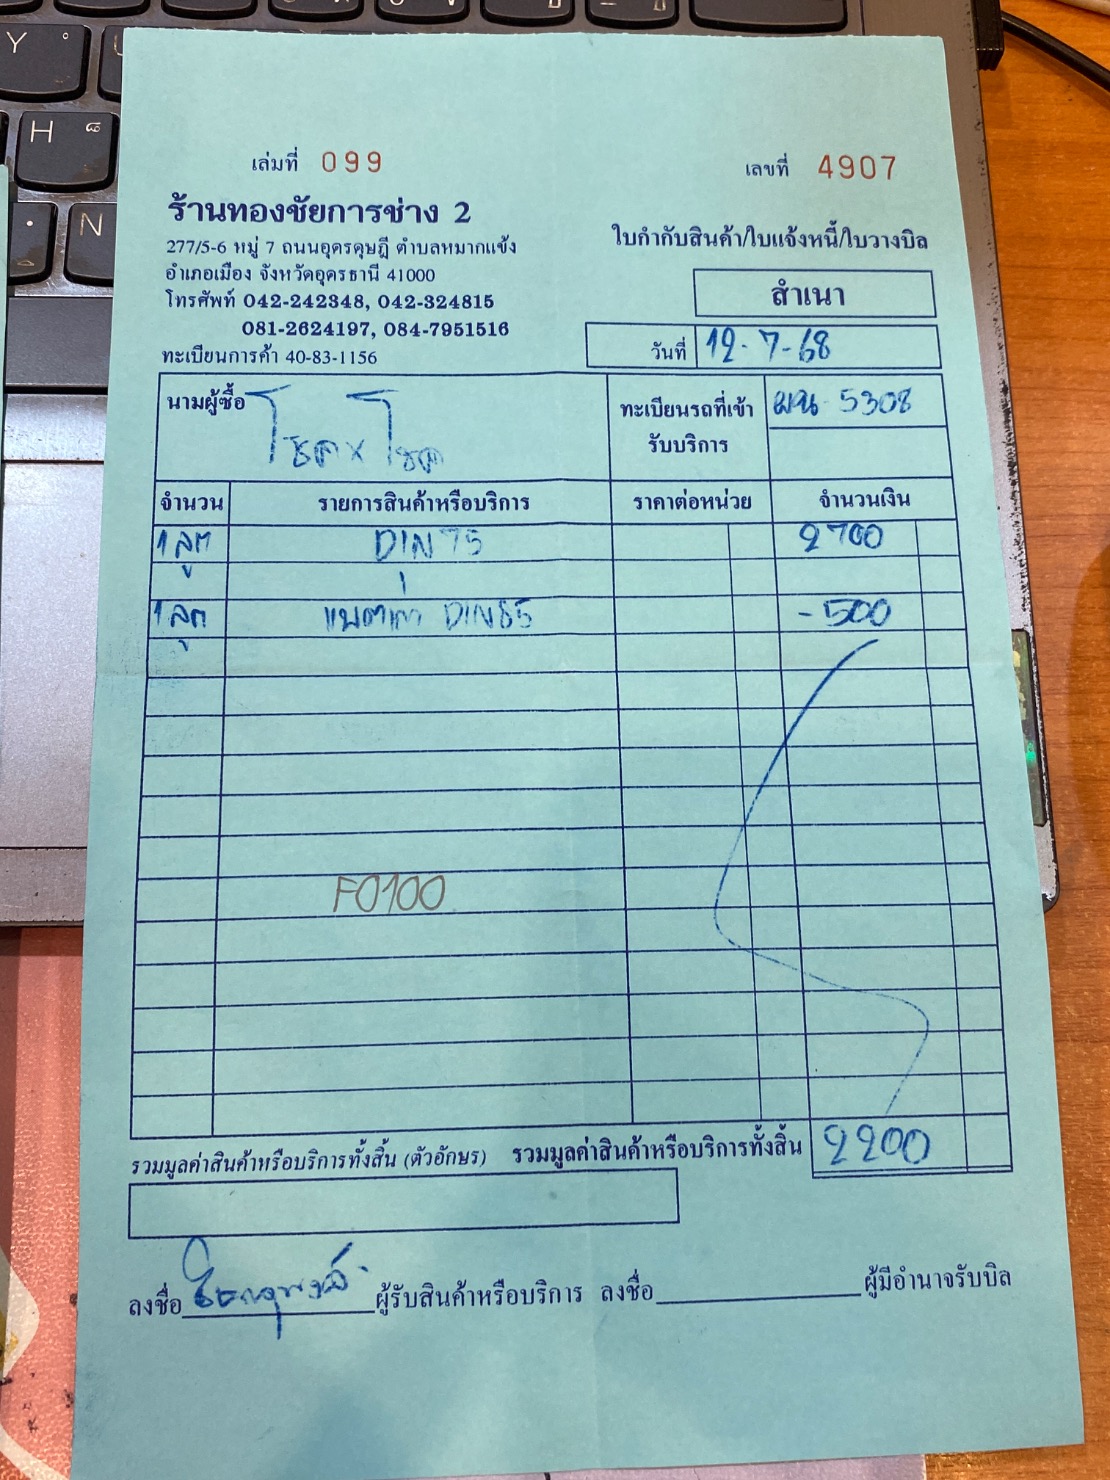 เล่มที่ 099
เลขที่ 4907
ร้านทองชัยการช่าง 2
277/5-6 หมู่ 7 ถนนอุดรดุษฎี ตำบลหมากแข้ง
อำเภอเมือง จังหวัดอุดรธานี 41000
โทรศัพท์ 042-242348, 042-324815
081-2624197, 084-7951516
ทะเบียนการค้า 40-83-1156
ใบกำกับสินค้า/ใบแจ้งหนี้/ใบวางบิล
สำเนา
วันที่ 12-7-68
นามผู้ซื้อ โชค x โชค
ทะเบียนรถที่เข้า
รับบริการ
5308
จำนวน รายการสินค้าหรือบริการ ราคาต่อหน่วย จำนวนเงิน
1 ลูก DIN 75 2700
1 ลูก แบตเก่า DIN85 -500
F0100
รวมมูลค่าสินค้าหรือบริการทั้งสิ้น (ตัวอักษร) รวมมูลค่าสินค้าหรือบริการทั้งสิ้น 2200
ลงชื่อ ผู้รับสินค้าหรือบริการ ลงชื่อ ผู้มีอำนาจรับบิล
Y
H
N